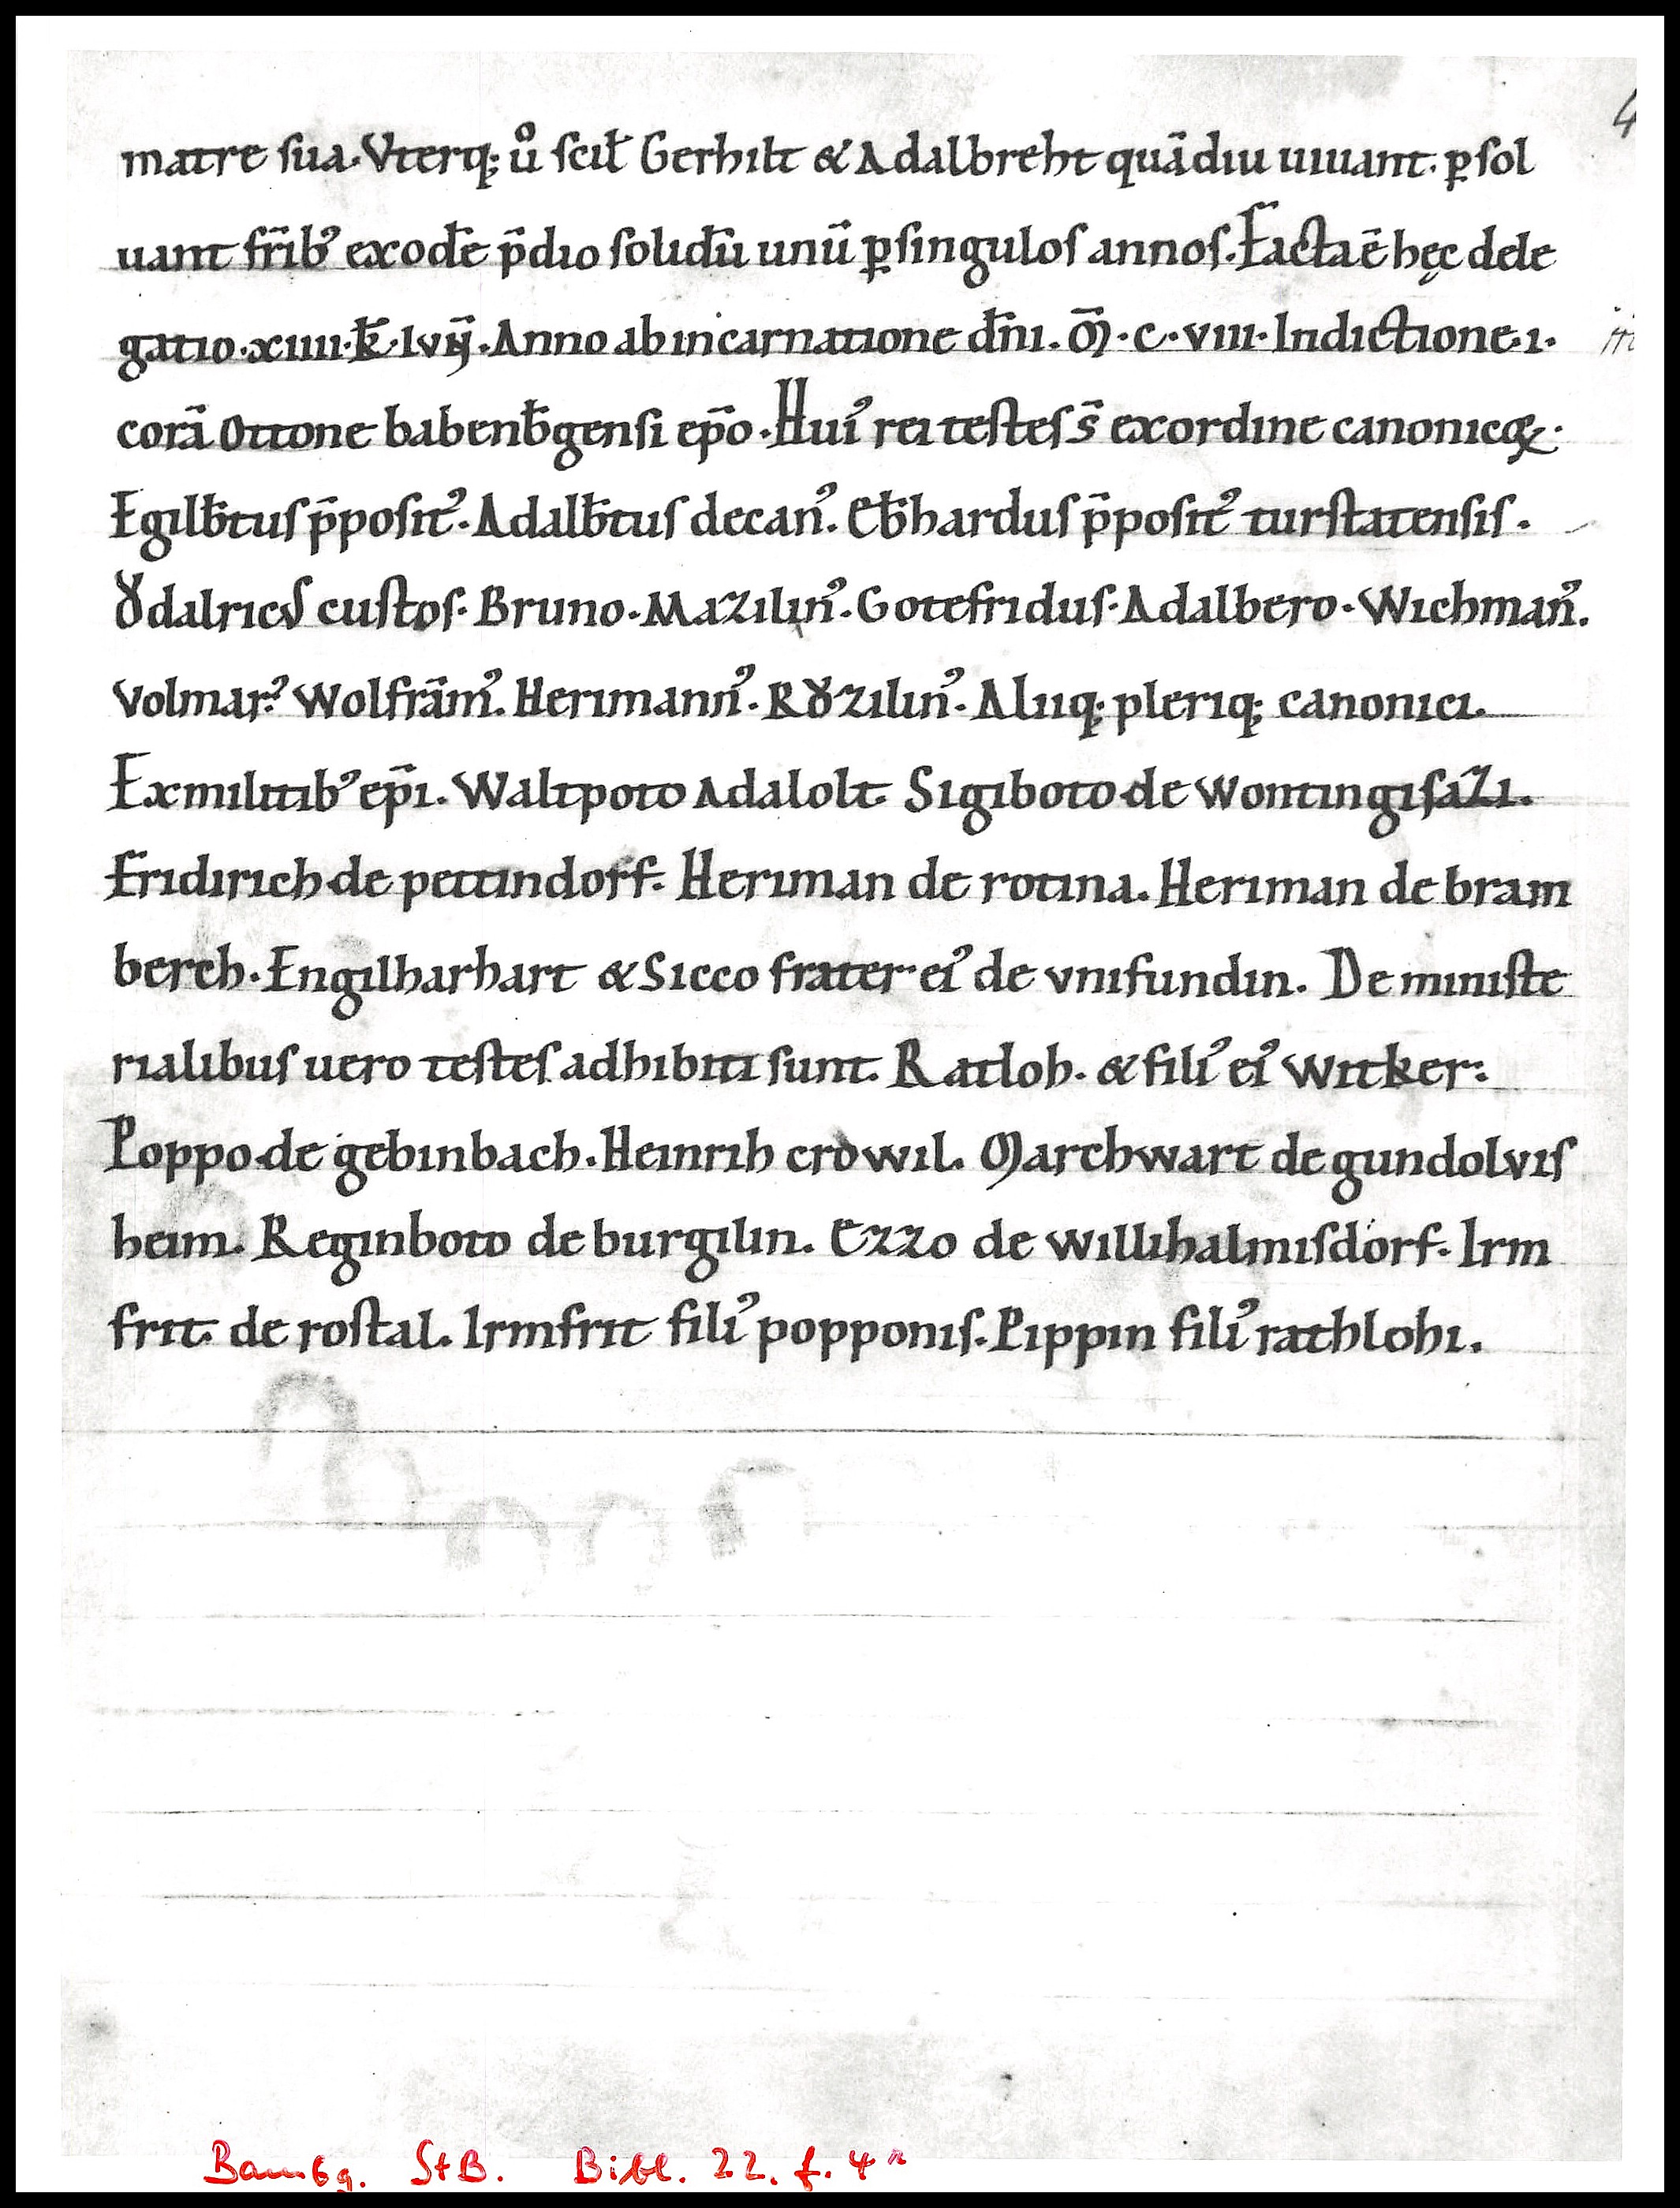 4
matre sua. Vterq; u᷒o scil̅ Gerhilt & Adalbreht quādiu uiuant. ꝑsol
uant fr̄ib᾿ exod̄e p̄dio solidū unū ꝑsingulos annos. Facta ē hęc dele
gatio. xiiii. k̅. Ivnii. Anno ab incarnatione dn̄i. M̄. C. VIII. Indictione. I.
corā Ottone babenb̄gensi ep̄o. Hui᾿ rei testes s̄ exordine canonicoꝝ.
Egilb̄tus p̄posit᾿. Adalb̄tus decan᾿. Eb̄hardus p̄posit᾿ turstatensis.
Ȣdalricus custos. Bruno. Mazilin᾿. Gotefridus. Adalbero. Wichman᾿.
Volmar᾿. Wolfrām᾿. Herimann᾿. Rȣzilin᾿. Aliiq; pleriq; canonici.
Exmilitib᾿ ep̄i. Waltpoto Adalolt. Sigiboto de Wontingisazi.
Fridirich de pettindorf. Heriman de rotina. Heriman de bram
berch. Engilharhart & Sicco frater ei᾿ de vnifundin. De ministe
rialibus uero testes adhibiti sunt. Ratloh. & fili᾿ ei᾿ Witker.
Poppo de gebinbach. Heinrih crowil. Marchwart de gundolvis
heim. Reginboto de burgilin. Ezzo de willihalmisdorf. Irm
frit. de rostal. Irmfrit fili᾿ popponis. Pippin fili᾿ rathlohi.
Bambg. StB. Bibl. 22. f. 4r